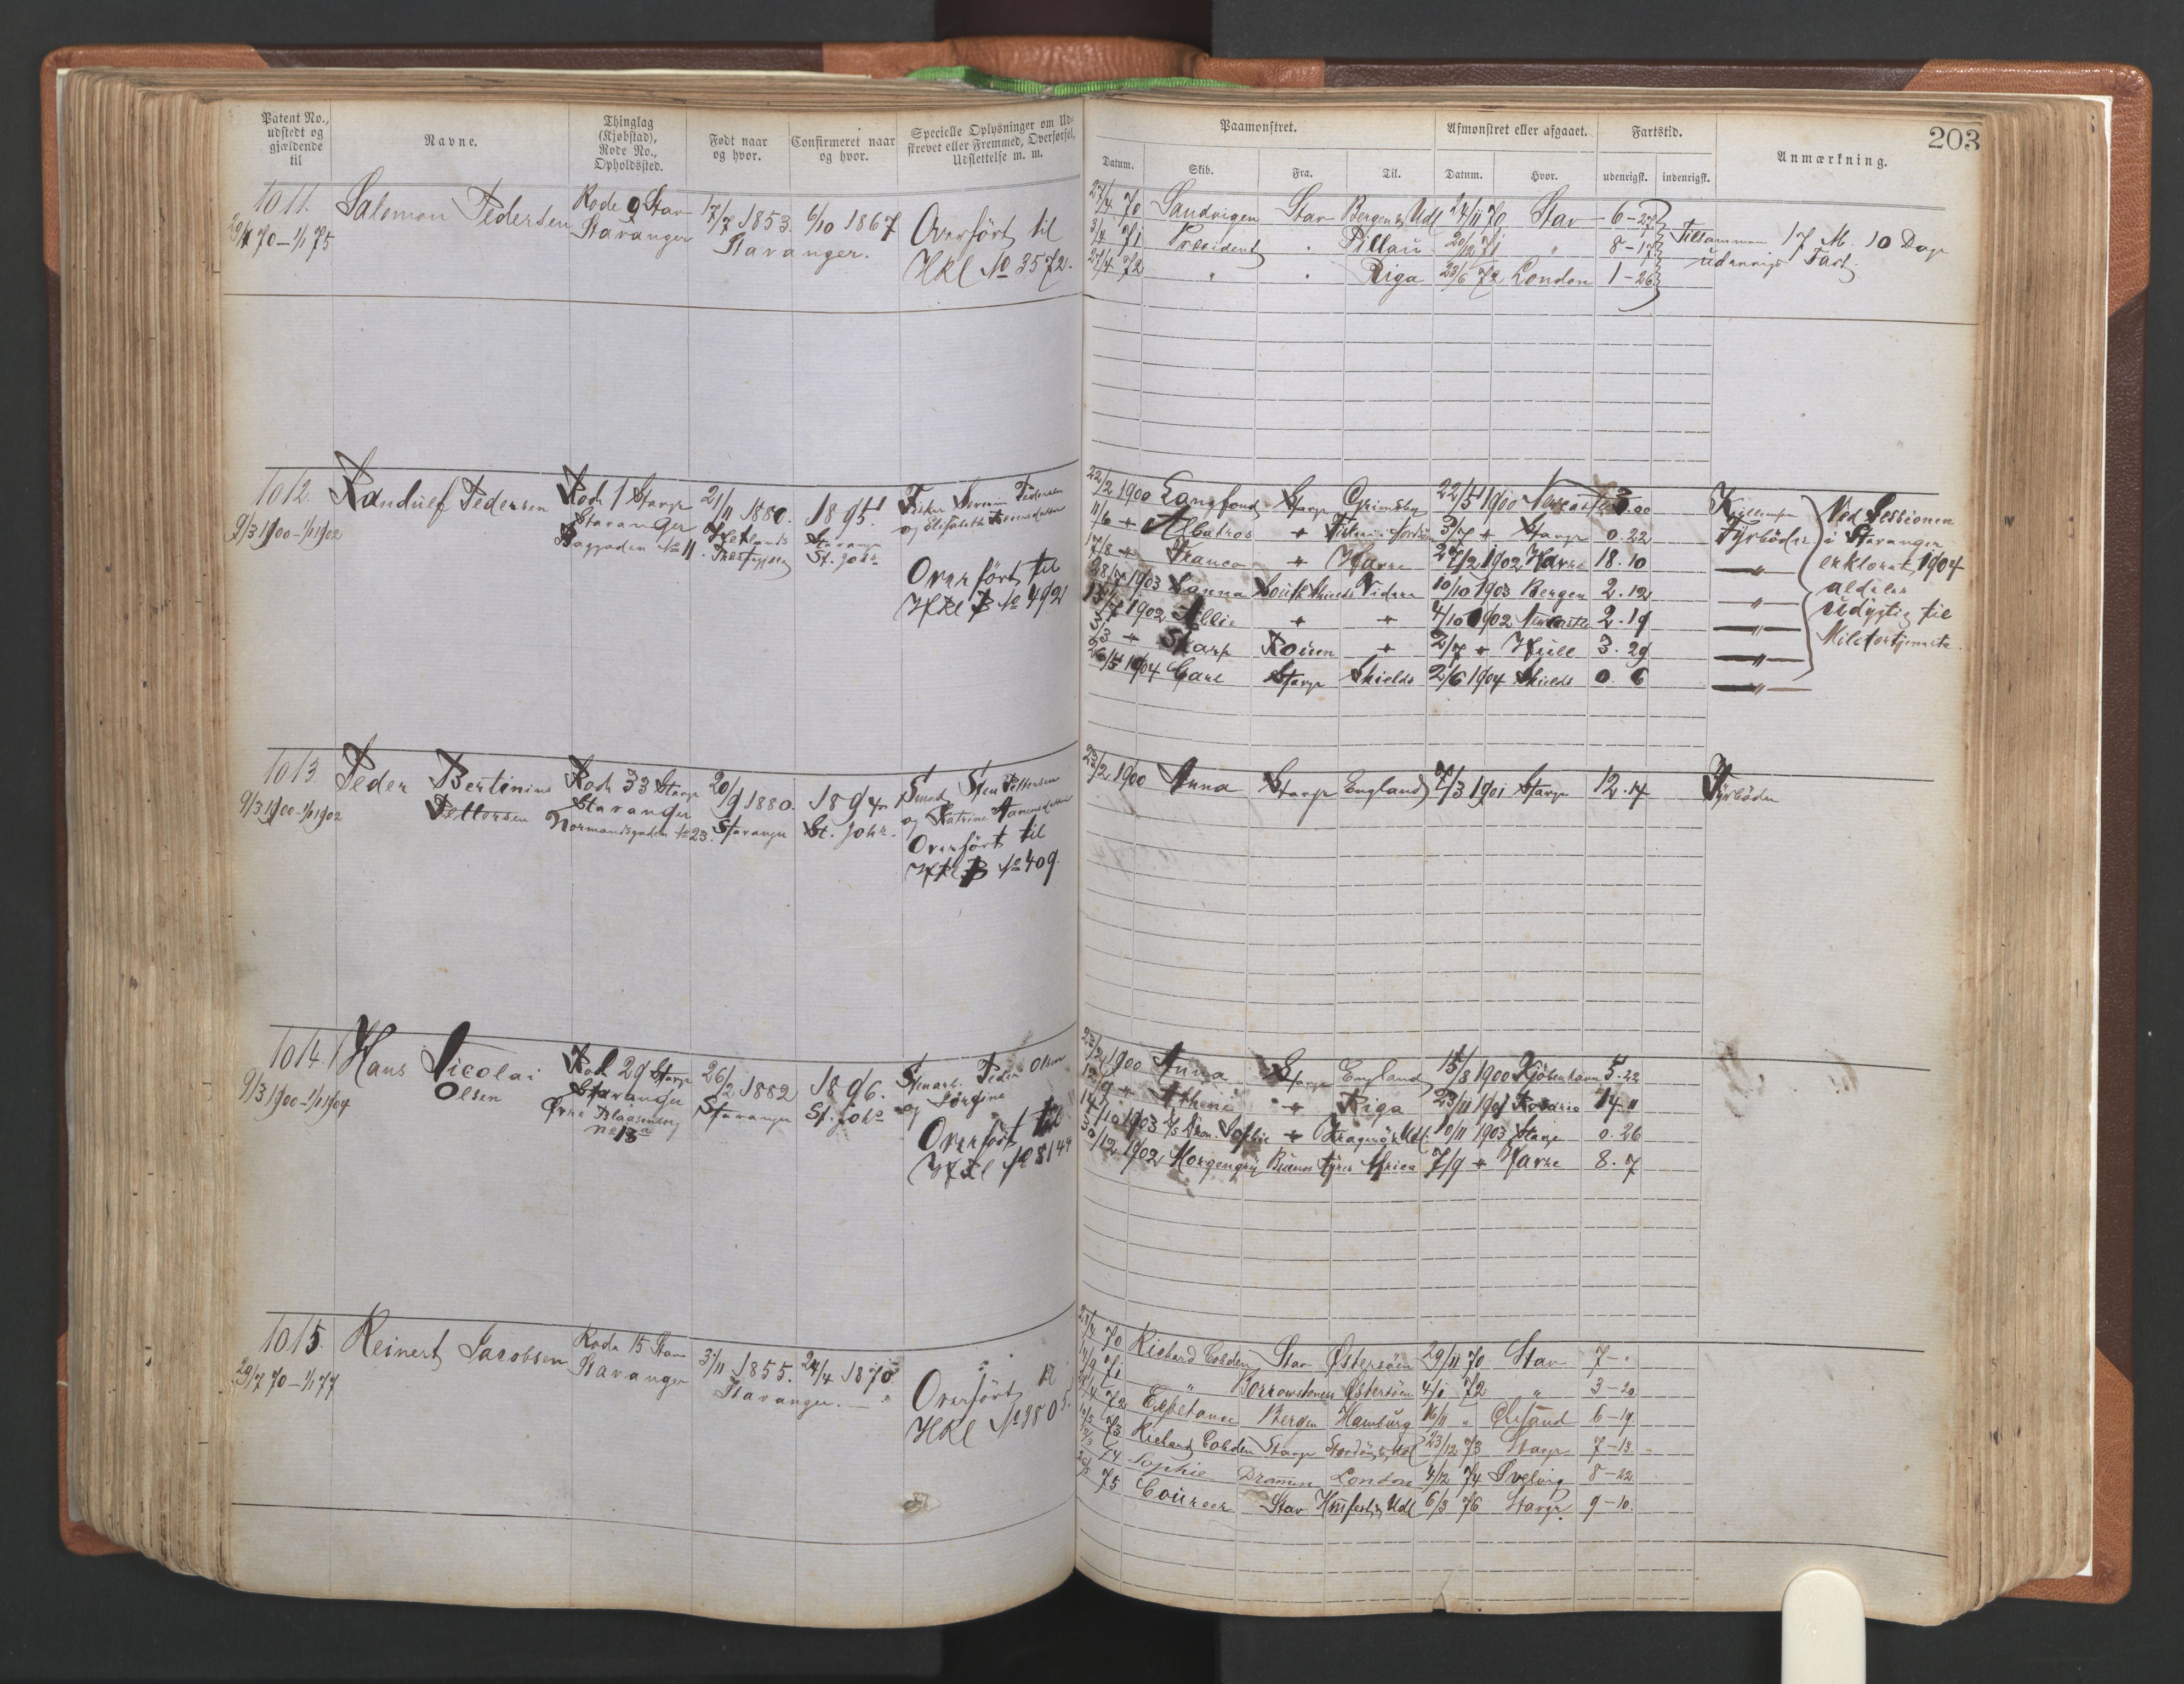 Patent No., udstedt og gjældende til
Navne.
Thinglag (Kjøbstad), Rode No., Opholdssted.
Født naar og hvor.
Confirmeret naar og hvor.
Specielle Oplysninger om Udstrevet eller Fremmed, Overførsel, Udslettelse m. m.
Paamønstret.
Afmønstret eller afgaaet.
Fartstid.
Anmærkning.
203
Datum.
Skib.
Fra.
Til.
Datum.
Hvor.
udenrigsk.
indenrigsk.
1011. Salomon Pedersen Rode 9 Stav 17/7 1853. 6/10 1867 Overført til
70–1/1 75 Stavanger Stavanger. HRl No 3572.
27/4 70 Sandvigen Stav Bergen & Udl 24/11 70 Stav 6–27 Tilsammen 17 M. 10 Dage
3/4 71 President " Pillau 20/12 71 " 8–17 udenrigs Fart.
27/4 72 " " Riga 23/6 72 London 1–26
1012. Randulf Pedersen Rode 1 Stavgr 21/11 1880. 1895. Fisker Severin Pedersen
9/3 1900–1/1 1902 Stavanger Stavanger og Elisabeth
Baggaden No 11. St. Johs
Overført til
HRl B No 492
22/2 1900 Langfond Stavgr Grimsby 22/5 1900 Newcastle 3.00
11/6 " Albatros " 3/7 " Stavgr 0.22 Fyrbøder
17/8 " Franco " Havre 27/2 1902 Havre 18.10 "
28/7 1903 Sanna South Shields Videre 10/10 1903 Bergen 2.12 "
1902 Allie " " 4/10 1902 Newcastle 2.19 "
3/3 " Skarp Rouen " 2/7 " Hull 3.29 "
26/5 1904 Carl Stavgr Shields 2/6 1904 Shields 0.6 "
Ved Sessionen
i Stavanger
erklæret, 1904
aldeles
udygtig til
Militærtjeneste.
1013. Peder Bertinius Rode 33 Stavgr 20/9 1880. 1894. Smed Sten Pettersen
9/3 1900–1/1 1902 Pettersen Stavanger Stavanger St. Johs. og Katrine
Normandsgaden No 23. Overført til
HRl B No 409.
23/2 1900 Anna Stavgr England 7/3 1901 Stavgr 12.14 Fyrbøder
1014. Hans Nicolai Rode 29 Stavgr 26/2 1882 1896. Stenarb. Peder Olsen
9/3 1900–1/1 1904 Olsen Stavanger Stavanger St. Johs og Jørgine
Øvre Blaasenborg
No 13a
Overført til
HRl No 8144
23/2 1900 Anna Stavgr England 15/8 1900 Kjøbenhavn 5.22
12/9 " Athene " Riga 23/11 1901 14.11
14/10 1903 Sophie " Udl. 9/11 1903 Stavgr 0.26
30/12 1902 Morgengry Buenos Ayres Africa 7/9 " Havre 8.7
1015. Reinert Jacobsen Rode 15 Stav 3/11 1855. 24/4 1870. Overført til
29/7 70–1/1 77 Stavanger Stavanger. HRl No 3805.
70 Richard Cobden Stav Østersøen 29/11 70 Stav 7–"
71 " Borrowstoness Østersøen 4/1 72 " 3–20
72 Espetance Bergen Hamburg 16/11 " Chrsand 6–19
73 Richard Cobden Stavgr 23/12 73 Stavgr 7–13
74 Sophie Dramm London 4/12 74 Svelvig 8–22
75 Coureer Stav Hmfest & Udl 6/3 76 Stavgr. 9–10.